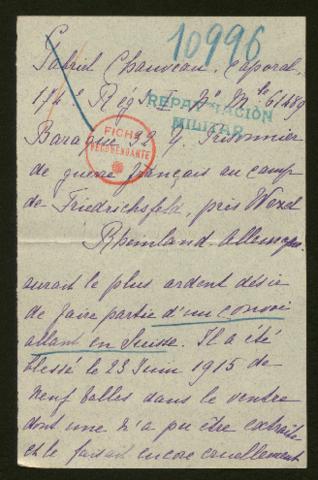 10996
Gabriel Chauveau, Caporal,
174e Régt I No Mle 61489
REPARACIÓN
MILITAR
Baraque 32 y. Prisonnier
FICHE
RECOMENDANTE
de guerre français au camp
de Friedrichsfeld, près Wesel
Rheinland-Allemagne.
aurait le plus ardent désir
de faire partie d'un convoi
allant en Suisse. Il a été
blessé le 23 Juin 1915 de
neuf balles dans le ventre
dont une n'a pu être extraite
et le faisait encore cruellement